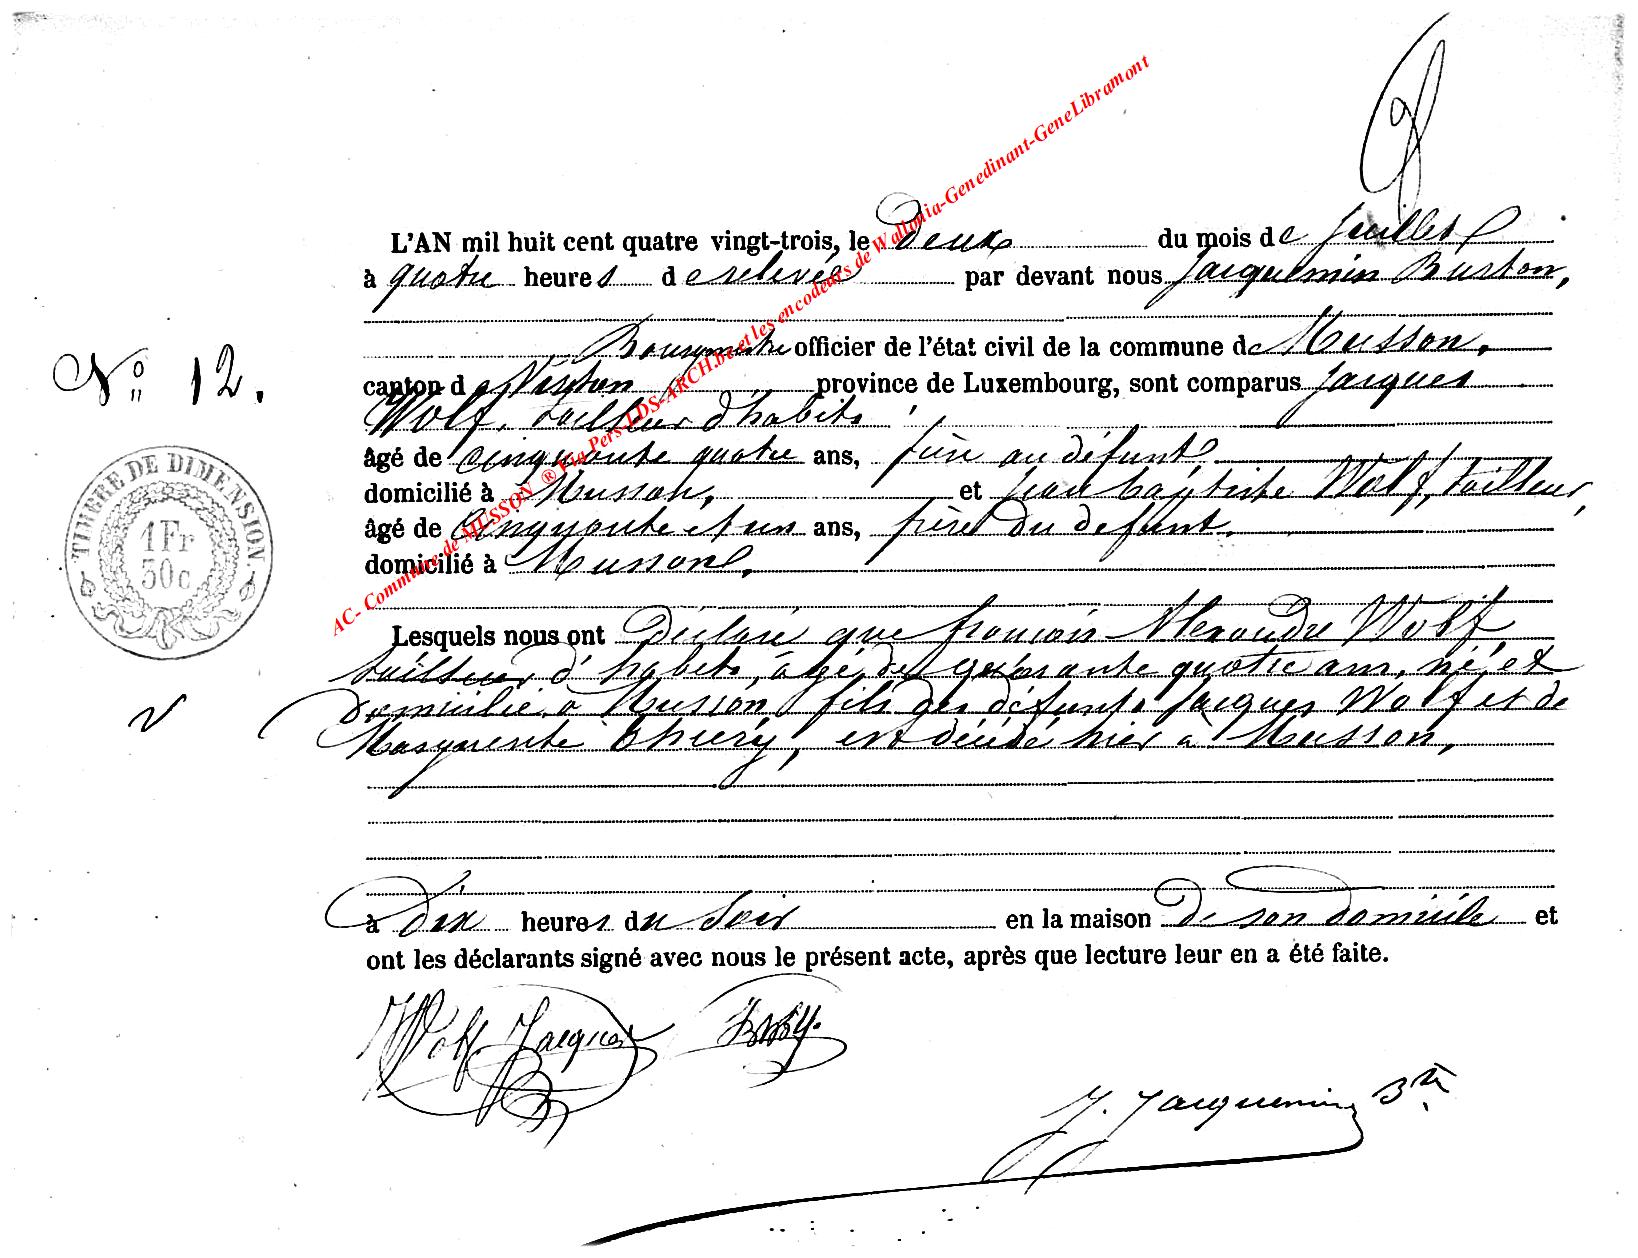 L'AN mil huit cent quatre vingt-trois, le deux du mois de Juillet
à quatre heures de relevée par devant nous Jacquemin Burton,
Bourgmestre officier de l'état civil de la commune de Musson,
canton de Virton province de Luxembourg, sont comparus Jacques
Wolf, tailleur d'habits
âgé de cinquante quatre ans, frère au défunt,
domicilié à Musson, et Jean baptiste Wolf, tailleur,
âgé de cinquante et un ans, frère du défunt,
domicilié à Musson,
Lesquels nous ont déclaré que françois Alexandre Wolf,
tailleur d'habits, âgé de quarante quatre ans, né et
domicilié à Musson, fils des défunts Jacques Wolf et de
Marguerite thiery, est décédé hier à Musson,
à dix heures du soir en la maison de son domicile et
ont les déclarants signé avec nous le présent acte, après que lecture leur en a été faite.
Wolf Jacques
J. Jacquemin Bte
No 12.
TIMBRE DE DIMENSION.
1Fr
50c
AC- Commune de MUSSON ® Via Pers-LDS-ARCH.be et les encodeurs de Wallonia-Genedinant-GeneLibramont